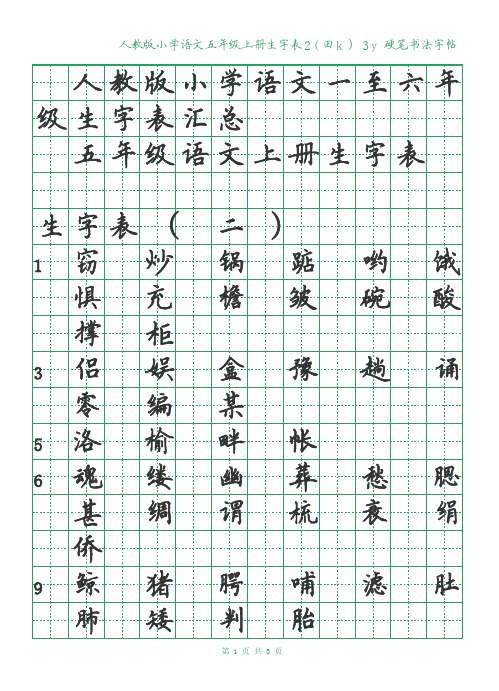 人教版小学语文五年级上册生字表2(田k） 3y 硬笔书法字帖
人教版小学语文一至六年
级生字表汇总
五年级语文上册生字表
生字表（ 二 ）
1 窃 炒 锅 踮 哟 饿
惧 充 檐 皱 碗 酸
撑 柜
3 侣 娱 盒 豫 趟 诵
零 编 某
5 洛 榆 畔 帐
6 魂 缕 幽 葬 愁 腮
甚 绸 谓 梳 衰 绢
侨
9 鲸 猪 腭 哺 滤 肚
肺 矮 判 胎
第 1 页 共 3 页